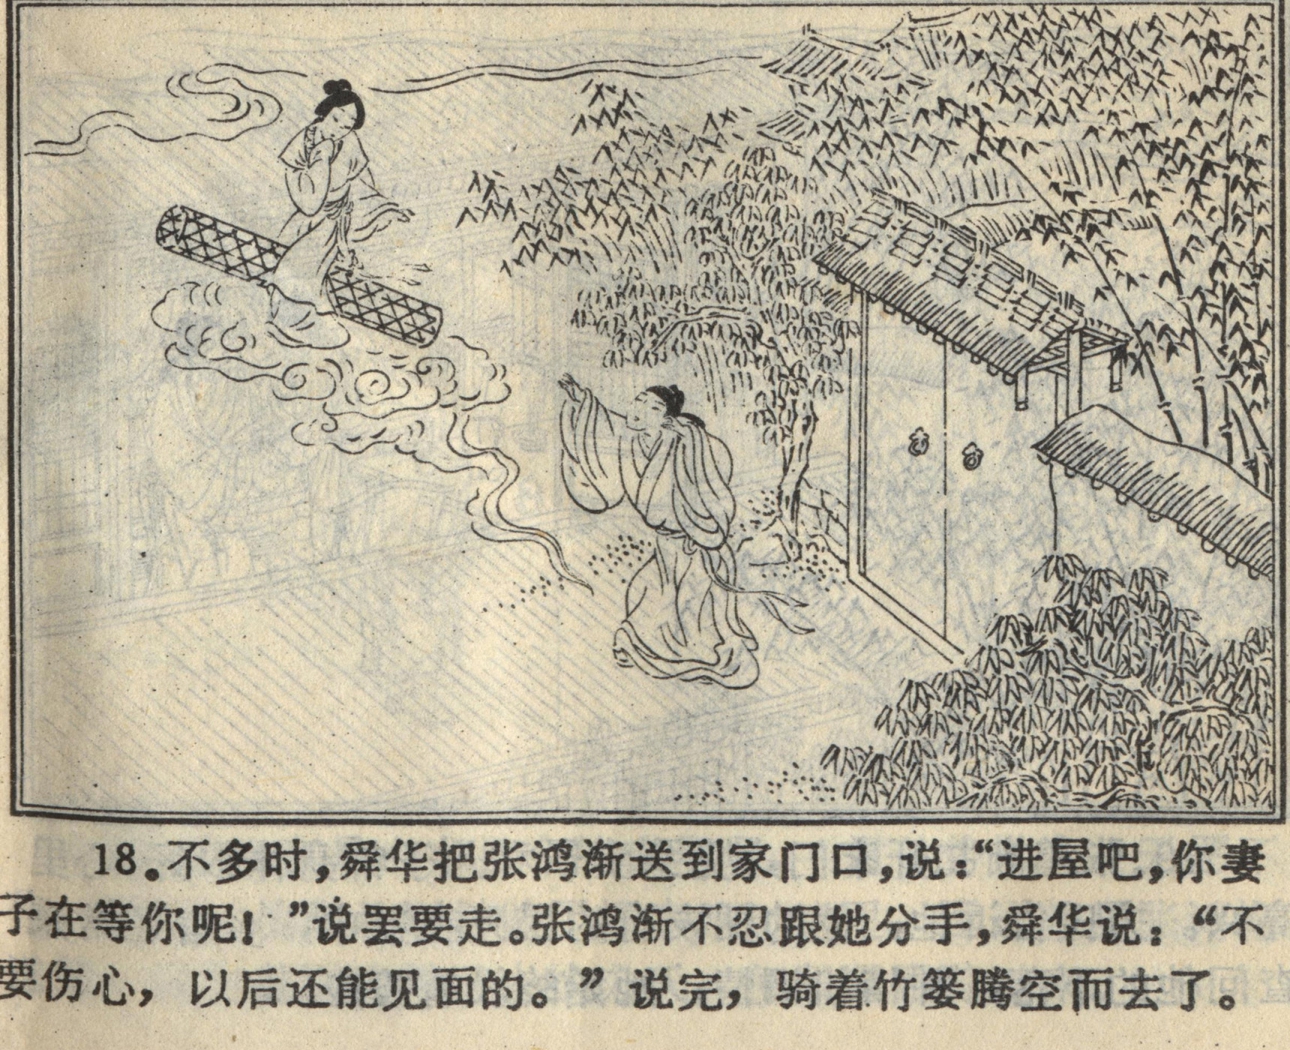 18。不多时，舜华把张鸿渐送到家门口，说：“进屋吧，你妻
子在等你呢！”说罢要走。张鸿渐不忍跟她分手，舜华说：“不
要伤心，以后还能见面的。”说完，骑着竹篓腾空而去了。